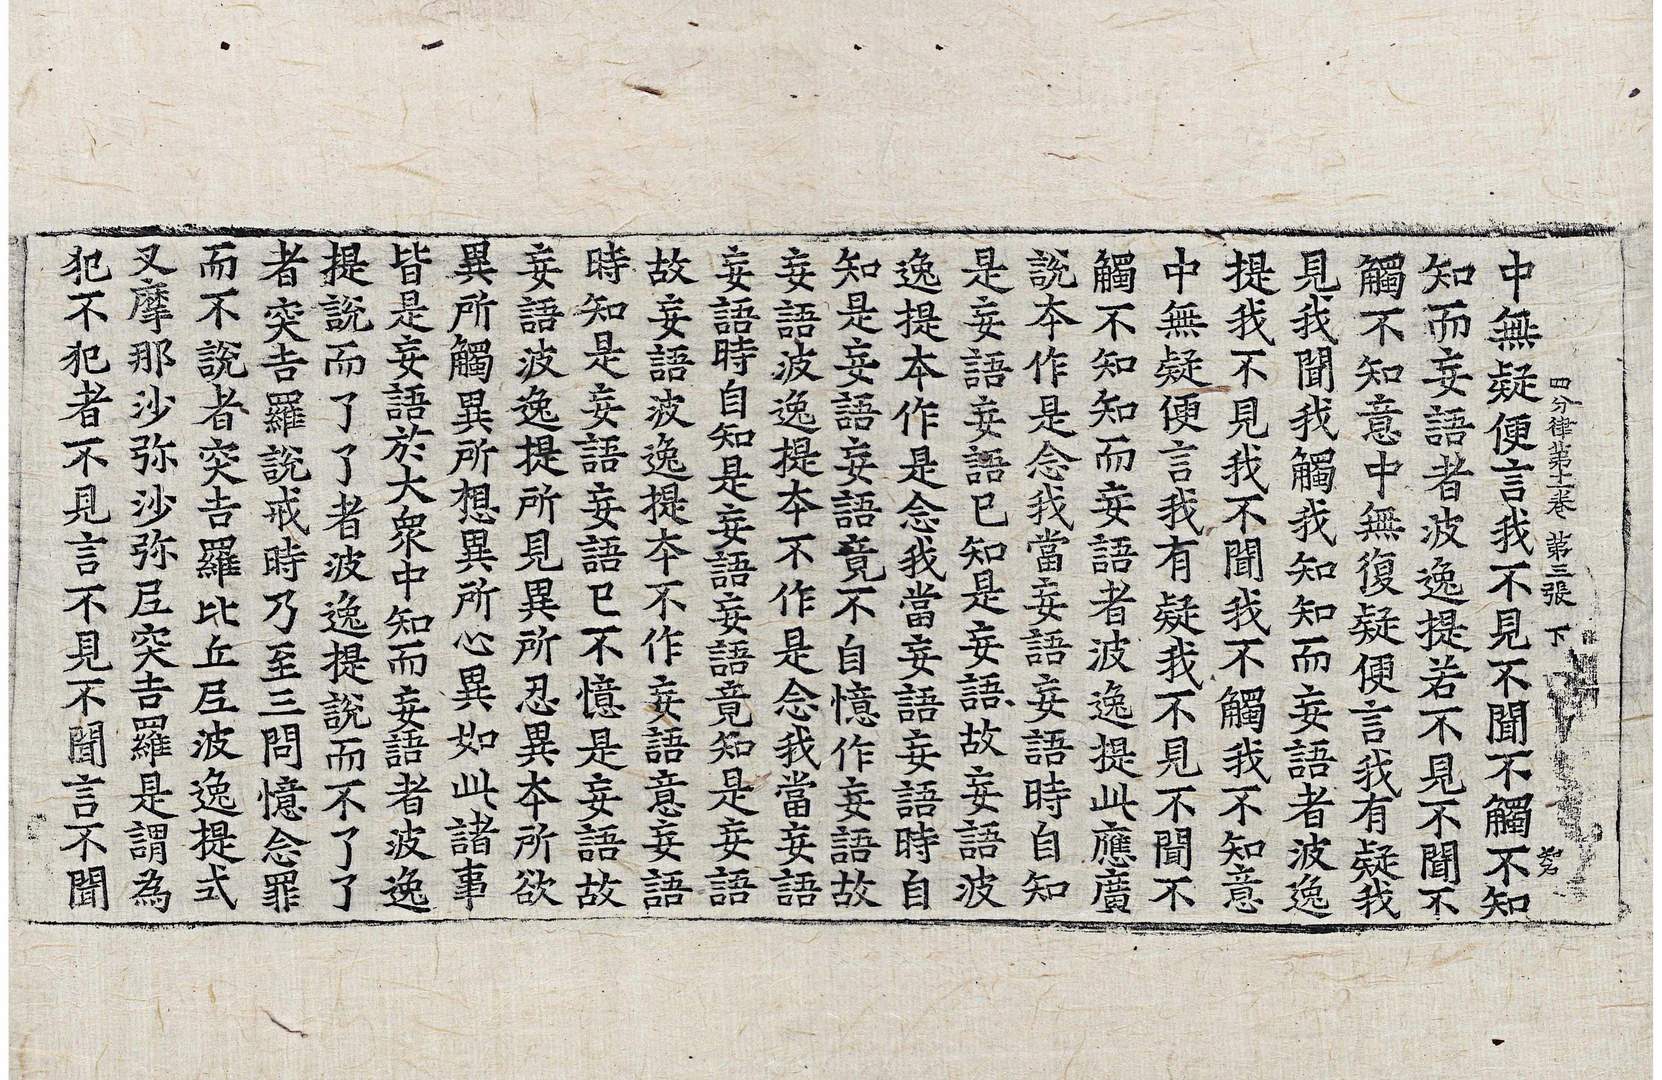 四分律第十一卷 第三張 下
中無疑便言我不見不聞不觸不知
知而妄語者波逸提若不見不聞不
觸不知意中無復疑便言我有疑我
見我聞我觸我知知而妄語者波逸
提我不見我不聞我不觸我不知意
中無疑便言我有疑我不見不聞不
觸不知知而妄語者波逸提此應廣
說本作是念我當妄語妄語時自知
是妄語妄語已知是妄語故妄語波
逸提本作是念我當妄語妄語時自
知是妄語妄語竟不自憶作妄語故
妄語波逸提本不作是念我當妄語
妄語時自知是妄語妄語竟知是妄語
故妄語波逸提本不作妄語意妄語
時知是妄語妄語已不憶是妄語故
妄語波逸提所見異所忍異本所欲
異所觸異所想異所心異如此諸事
皆是妄語於大眾中知而妄語者波逸
提說而了了者波逸提說而不了了
者突吉羅說戒時乃至三問憶念罪
而不說者突吉羅比丘尼波逸提式
叉摩那沙弥沙弥尼突吉羅是謂為
犯不犯者不見言不見不聞言不聞